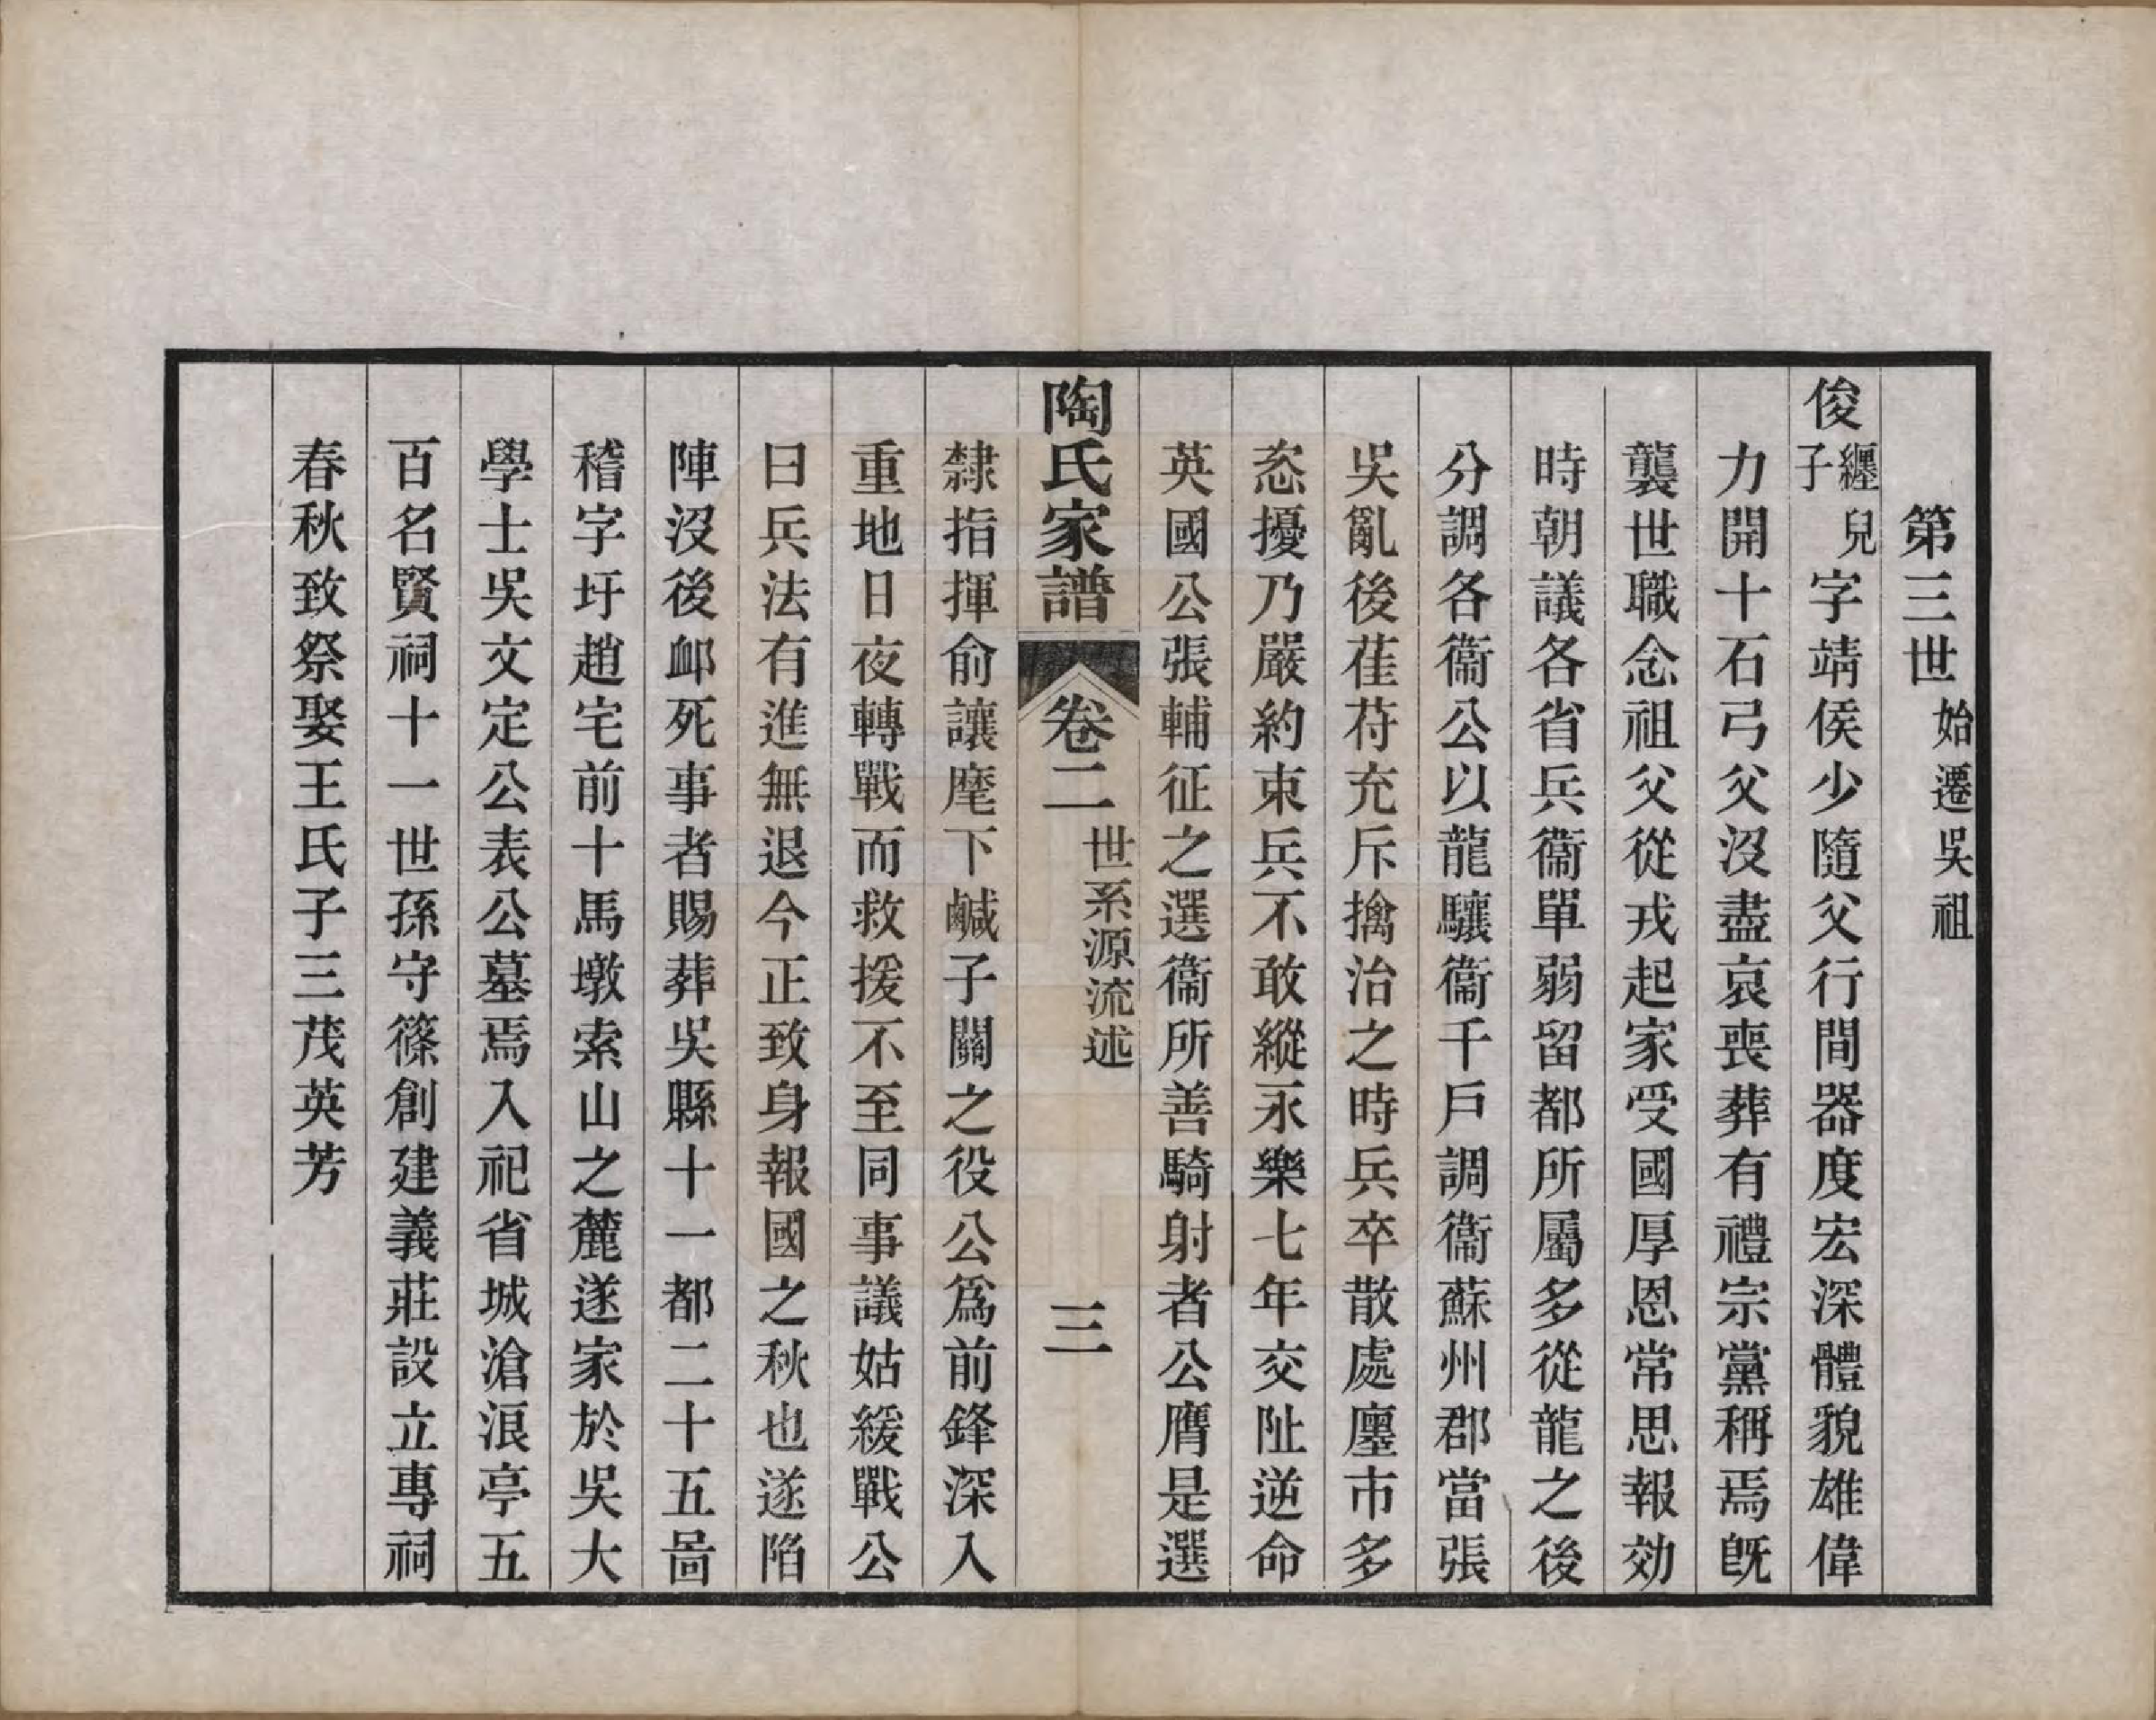 第三世 始遷吳祖
俊 纏兒子 字靖侯少隨父行間器度宏深體貌雄偉
力開十石弓父沒盡哀喪葬有禮宗黨稱焉旣
襲世職念祖父從戎起家受國厚恩常思報効
時朝議各省兵衞單弱留都所屬多從龍之後
分調各衞公以龍驤衞千戶調衞蘇州郡當張
吳亂後萑苻充斥擒治之時兵卒散處廛市多
恣擾乃嚴約束兵不敢縱永樂七年交阯逆命
英國公張輔征之選衞所善騎射者公膺是選
陶氏家譜 卷二 世系源流述 三
隸指揮俞讓麾下鹹子關之役公爲前鋒深入
重地日夜轉戰而救援不至同事議姑緩戰公
曰兵法有進無退今正致身報國之秋也遂陷
陣沒後卹死事者賜葬吳縣十一都二十五啚
稽字圩趙宅前十馬墩索山之麓遂家於吳大
學士吳文定公表公墓焉入祀省城滄浪亭五
百名賢祠十一世孫守篠創建義莊設立專祠
春秋致祭娶王氏子三茂英芳